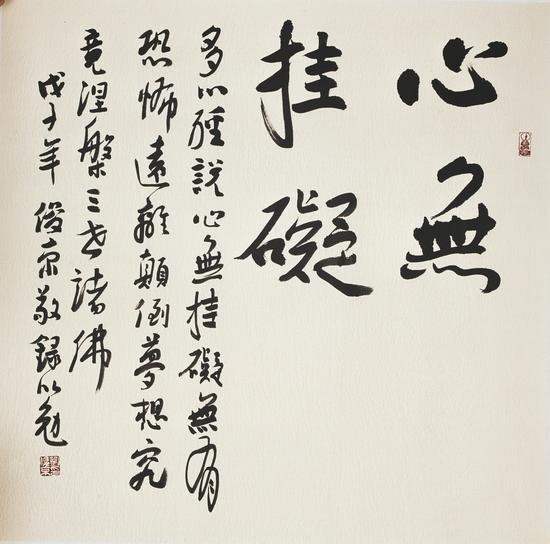 心無
挂礙
多心經說心無挂礙無有
恐怖遠離顛倒夢想究
竟涅槃三世諸佛
戊子年俊京敬錄以勉